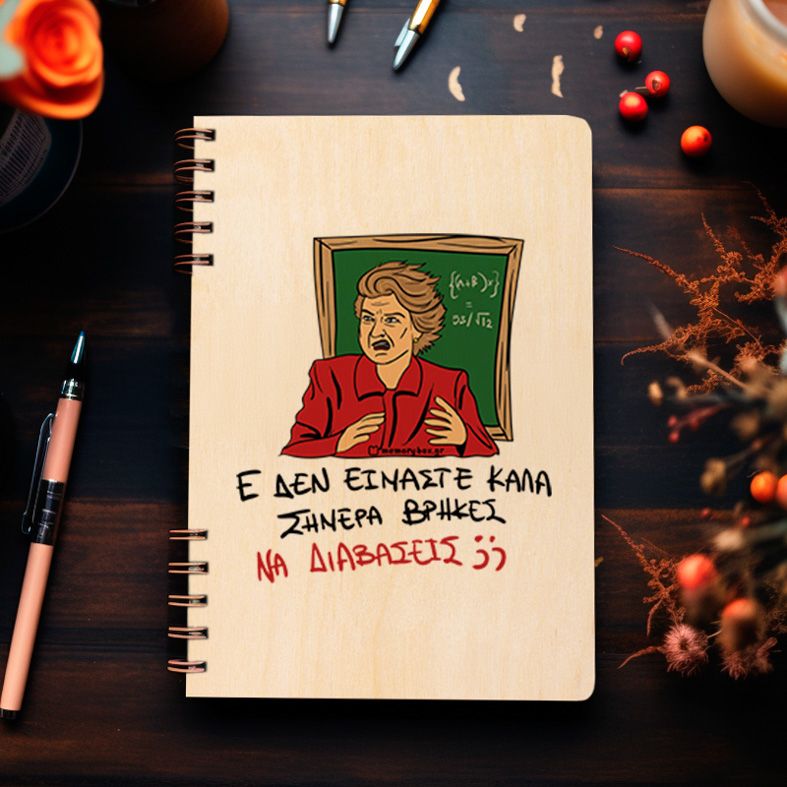 {(A+B)x}
=
93/√12
memorybox.gr
Ε ΔΕΝ ΕΙΜΑΣΤΕ ΚΑΛΑ
ΣΗΜΕΡΑ ΒΡΗΚΕΣ
ΝΑ ΔΙΑΒΑΣΕΙΣ ;;)